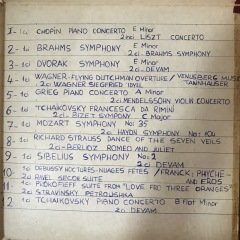 1- 1ci CHOPIN PIANO CONCERTO E Minor
2nci LISZT CONCERTO
2- 1ci BRAHMS SYMPHONY E Minor
2ci BRAHMS SYMPHONY
3- 1ci DVORAK SYMPHONY E Minor
2ci DEVAM
4- 1ci WAGNER-FLYING DUTCHMAN OVERTURE / VENUSBERG MUSIC
2ci WAGNER SIEGFRIED IDYLL TANNHAUSER
5- 1ci GRIEG PIANO CONCERTO A Minor
2ci MENDELSSOHN VIOLIN CONCERTO
6- 1ci TCHAIKOVSKY FRANCESCA DA RIMINI
2ci BIZET SYMPONY C Major
7- 1ci MOZART SYMPHONY No: 35
2ci HAYDN SYMPHONY No: 104
8- 1ci RICHARD STRAUSS DANCE OF THE SEVEN VEILS
2ci-BERLIOZ ROMEO AND JULIET
9- 1ci SIBELIUS SYMPHONY No: 2
2ci DEVAM
10- 1ci DEBUSSY NOCTURES-NUAGES FETES / FRANCK; PHYCHE-
2ci RAVEL SECOR SUITE AND EROS
11- 1ci PROKOFIEFF SUITE FROM "LOVE FRO THREE ORANGES"
2ci STRAVINSKY PETROUSHKA
12- 1ci TCHAIKOVSKY PIANO CONCERTO B Flat Minor
2ci DEVAM